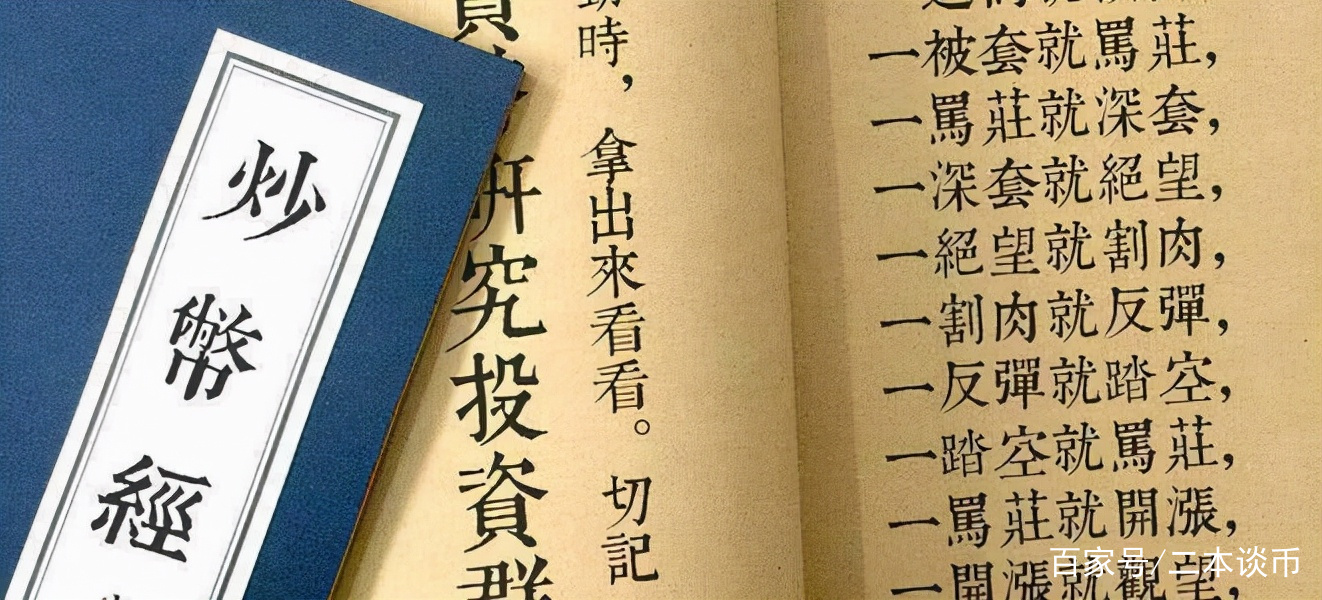 炒幣經
研究投資群
時，拿出來看看。切記
一被套就罵莊，
一罵莊就深套，
一深套就絕望，
一絕望就割肉，
一割肉就反彈，
一反彈就踏空，
一踏空就罵莊，
一罵莊就開漲，
一開漲就觀望，
百家号/二本谈币